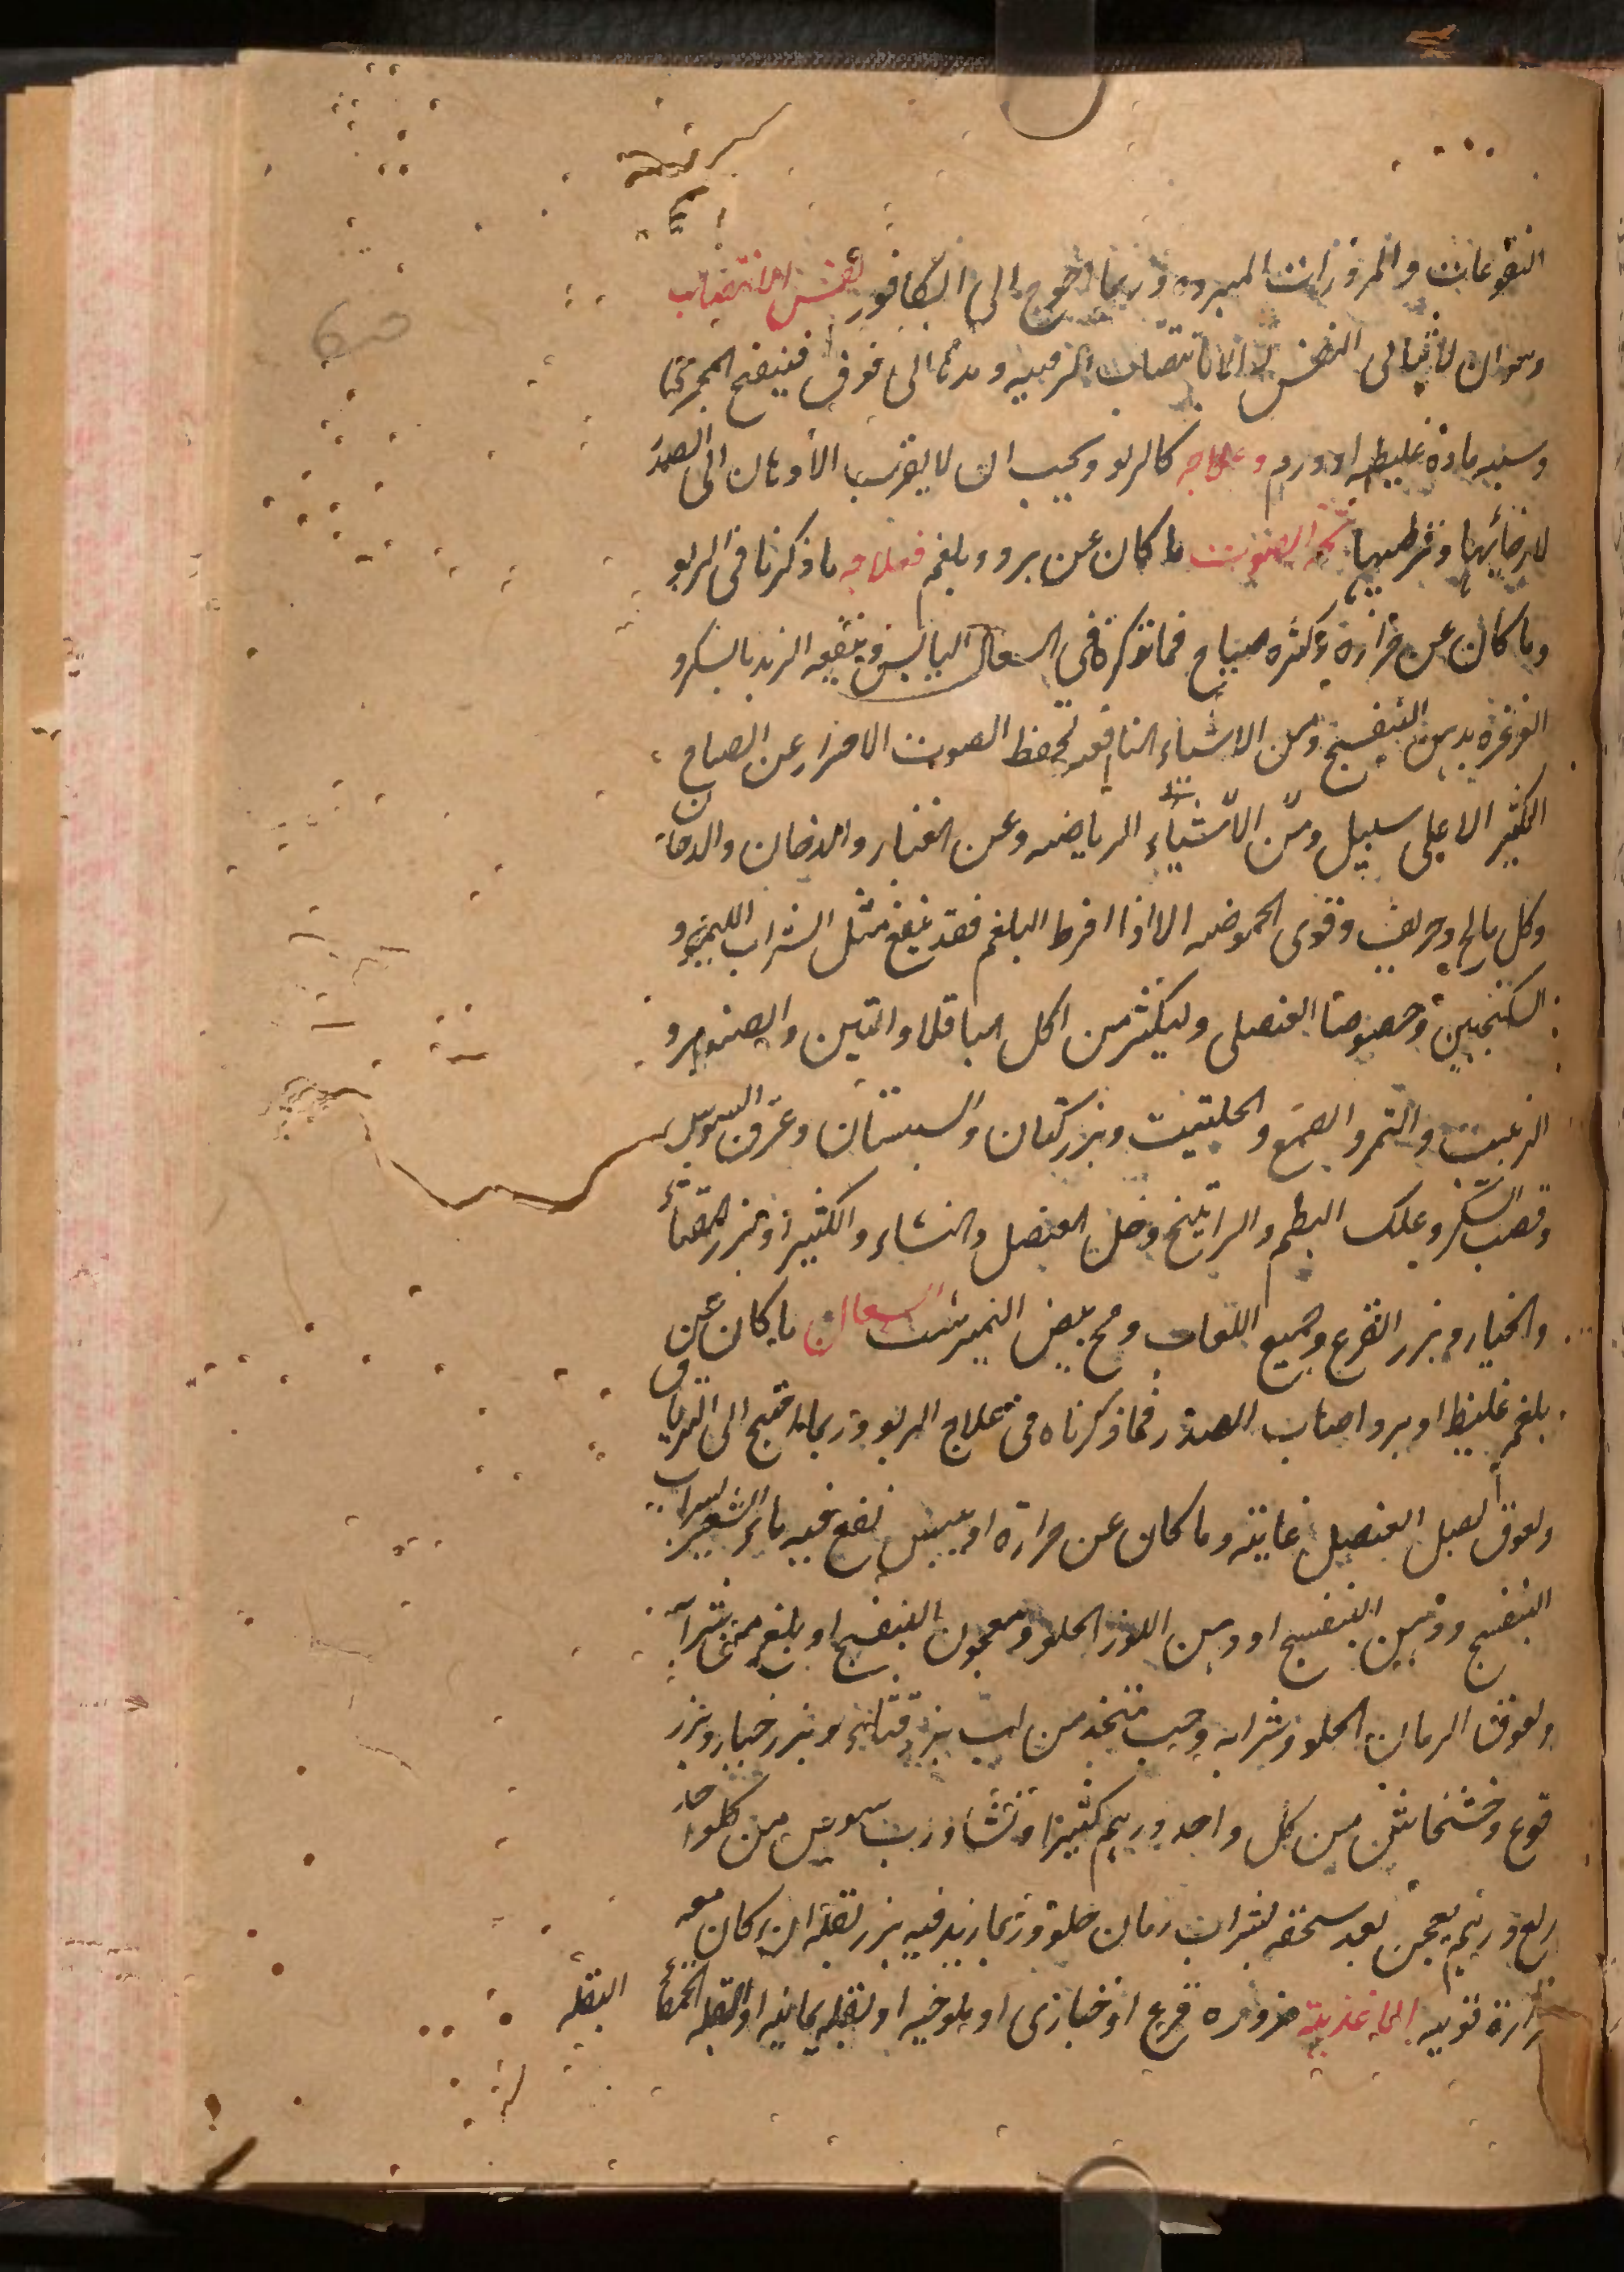 النقوعات والمزورات المبرده وربما احوج الى الكافور نفس الانتصاب
وهو ان لا يتاتى النفس الا بانتصاب الرقبه ومدها الى فوق فينفتح المجرى
وسببه ماده غليظه او ورم وعلاجه كالربو ويجب ان لا يقرب الادهان الى الصدر
لارخائها وترطيبها بحه الصوت ما كان عن برد وبلغم فعلاجه ما ذكرنا فى الربو
وما كان عن حرارة وكثره صياح فما نذكره فى السعال اليابس وينفعه الزبد بالسكر و
الغرغره بدهن البنفسج ومن الاشياء النافعه لحفظ الصوت الاحتراز عن الصياح
الكثير الا على سبيل ومن الاشياء الرياضه وعن الغبار والدخان والدخان
وكل مالح وحريف وقوى الحموضه الا اذا افرط البلغم فقد ينفع مثل الشراب الليمون و
السكنجبين وخصوصا العنصلى وليكثر من اكل الباقلا والتين والصنوبر و
الزبيب والتمر والصمغ والحلتيت وبزر كتان والسبستان وعرق السوس
وقصب السكر وعلك البطم والراتينج وخل العنصل والنشاء والكثيرا وبزر القثاء
والخيار وبزر القرع وجميع اللعاب ومح بيض النميرشت السعال ما كان عن
بلغم غليظ او برد اصاب الصدر فما ذكرناه فى علاج الربو وربما احتيج الى الترياق
ولعوق لصل العنصل غايته وما كان عن حرارة او يبس نفع فيه ماء الشعير بشراب
البنفسج ودهن البنفسج او دهن اللوز الحلو ومعجون البنفسج او بلغ من شراب
ولعوق الرمان الحلو وشرابه وحب متخذ من لب بزر قثاء وبزر خيار وبزر
قرع وخشخاش من كل واحد درهم كثيرا ونشا ورب سوس من كلواحد
ربع درهم يعجن بعد سحقه بشراب رمان حلو وربما زيد فيه بزر بقله ان كان معه
حرارة قويه الاغذية مزوره قرع او خبازى او ملوخيه او بقله يمانيه او البقله الحمقاء
البقله